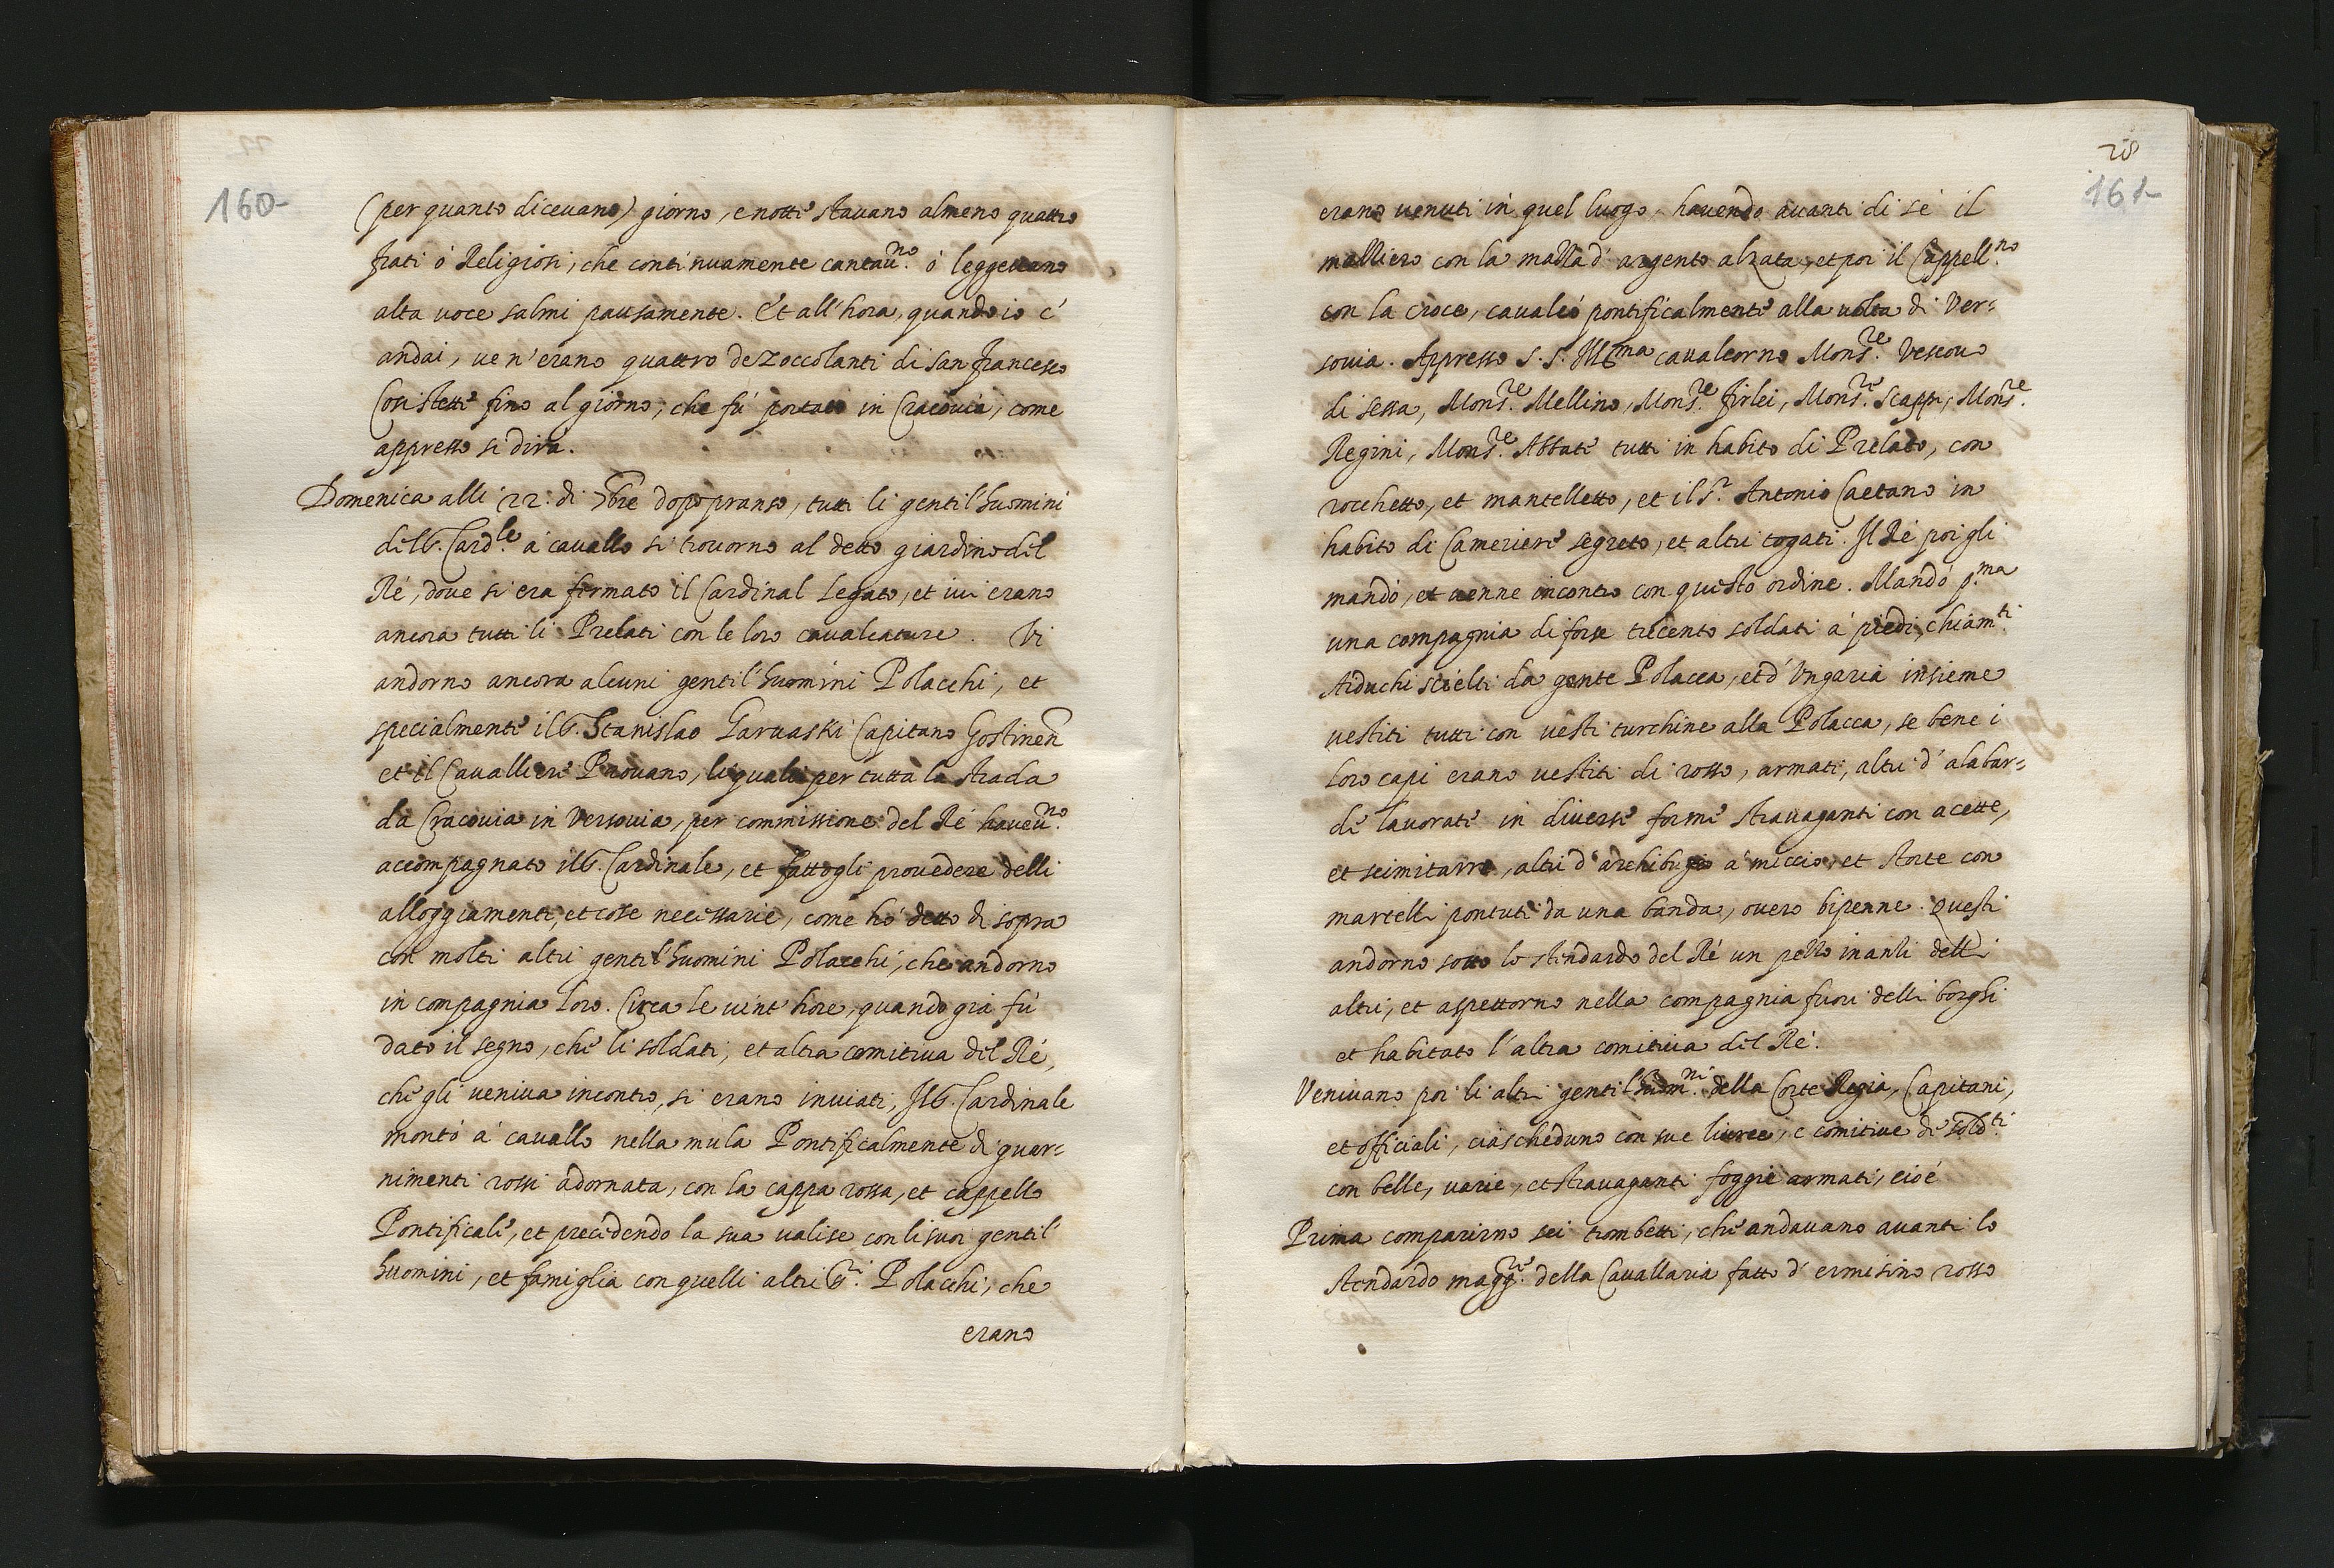 160-
(per quanto diceuano) giorno, e notte stauano almeno quattro
frati ò Religiosi, che continuamente cantau.no ò leggeuano
alta uoce salmi pausamente. Et all'hora, quando io c'
andai, ue n'erano quattro de zoccolanti di san francesco
Cosi stette fino al giorno, che fù portato in Cracouia, come
appresso si dirà.
Domenica alli 22. di 7bre dopo pranso, tutti li gentil'huomini
dell'Ill. Card.le à cauallo si trouorno al detto giardino del
Rè, doue si era fermato il Cardinal Legato, et iui erano
ancora tutti li Prelati con le loro caualcature. Vi
andorno ancora alcuni gentil'huomini Polacchi, et
specialmente il S. Stanislao Garuaski Capitano Gostinen
et il Cauallier Prouano, li quali per tutta la strada
da Cracouia in Versouia, per commissione del Rè haueu.no
accompagnato Cardinale, et fattogli prouedere delli
alloggiamenti, et cose necessarie, come hò detto di sopra
con molti altri gentil'huomini Polacchi, che andorno
in compagnia loro. Circa le uint'hore, quando già fù
dato il segno, che li soldati, et altra comitiua del Rè,
che gli ueniua incontro, si erano inuiati, Cardinale
montò à cauallo nella mula Pontificalmente di guar=
nimenti rossi adornata, con la cappa rossa, et cappello
Pontificale, et precedendo la sua ualise con li suoi gentil'
huomini, et famiglia con quelli altri S.ri Polacchi, che
erano
28
161-
erano uenuti in quel luogo, hauendo auanti di se il
mazziero con la mazza d'argento alzata, et poi il Cappell.no
con la croce, caualcò pontificalmente alla uolta di Ver=
souia. Appresso S. S. Ill.ma caualcorno Mons.re Vescouo
di sessa, Mons.re Mellino, Mons.re Firlei, Mons.re Scappi, Mons.re
Regini, Mons.re Abbate tutti in habito di Prelato, con
rocchetto, et mantelletto, et il S.r Antonio Caetano in
habito di Cameriere segreto, et altri togati. Il Rè poi gli
mandò, et uenne incontro con questo ordine. Mandò p.ma
una compagnia di forse trecento soldati à piedi, chiam.ti
Aiduchi scielti da gente Polacca, et d'Vngaria insieme
uestiti tutti con uesti turchine alla Polacca, se bene i
loro capi erano uestiti di rosso, armati, altri d'alabar=
de lauorate in diuerse forme strauaganti con acette,
et scimitarre, altri d'archibugio à miccio, et storte con
martelli pontuti da una banda, ouero bipenne. Questi
andorno sotto lo stendardo del Rè un pezzo inanzi delli
altri, et aspettorno nella compagnia fuori delli borghi
et habitato l'altra comitiua del Rè.
Veniuano poi li altri gentil'huom.ni della Corte Regia, Capitani,
et officiali, ciascheduno con sue liuree, e comitiue di sold.ti
con belle, uarie, et strauaganti foggie armati, cioè
Prima comparirno sei trombetti, che andauano auanti lo
stendardo magg.re della Cauallaria fatto d'ermisino rosso